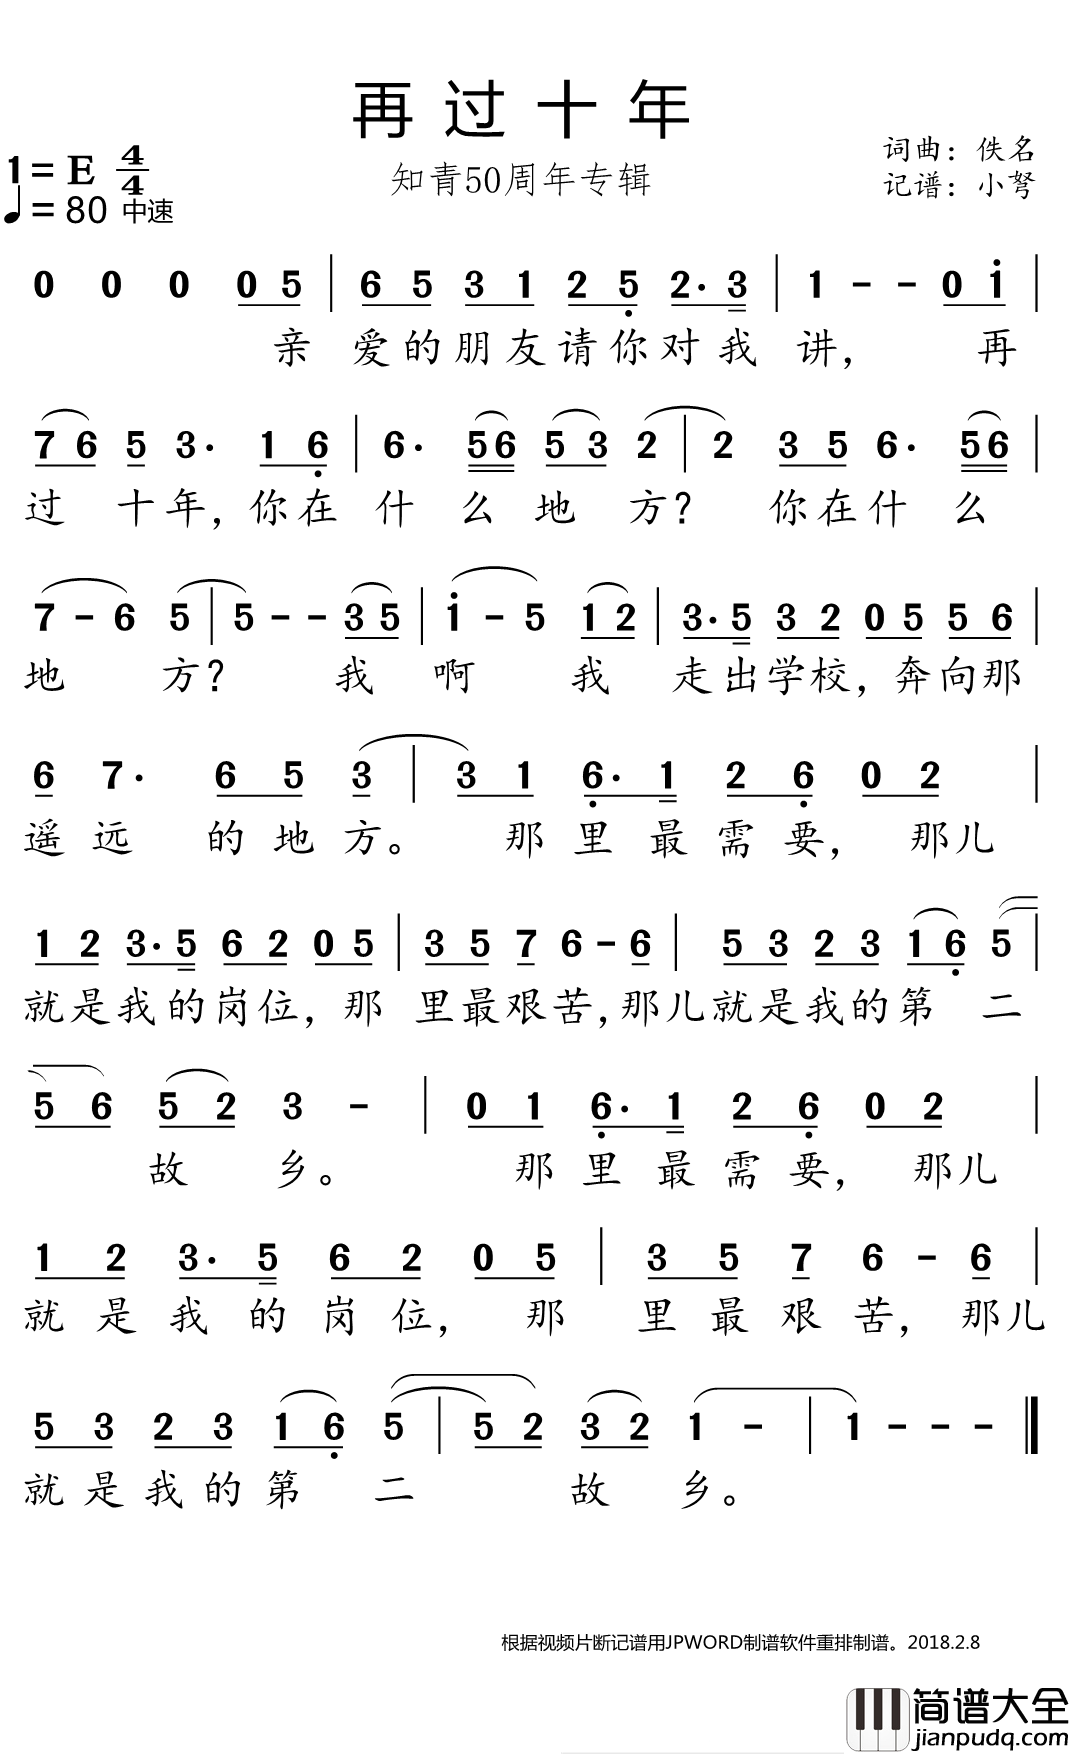 再过十年
知青50周年专辑
词曲：佚名
记谱：小弩
1=E 4/4
♩=80 中速
0 0 0 0 5 | 6 5 3 1 2 5̣ 2· 3 | 1 - - 0 1̇ |
亲 爱的朋友请你对我 讲， 再
7 6 5 3· 1 6̣ | 6· 56 5 3 2 | 2 3 5 6· 56 |
过 十年，你在 什 么 地 方？ 你在什 么
7 - 6 5 | 5 - - 3 5 | 1̇ - 5 1 2 | 3· 5 3 2 0 5 5 6 |
地 方？ 我 啊 我 走出学校，奔向那
6 7· 6 5 3 | 3 1 6̣· 1 2 6̣ 0 2 |
遥远 的地方。 那里最需要， 那儿
1 2 3· 5 6 2 0 5 | 3 5 7 6 - 6 | 5 3 2 3 1 6̣ 5 |
就是我的岗位，那 里最艰苦，那儿就是我的第 二
5 6 5 2 3 - | 0 1 6̣· 1 2 6̣ 0 2 |
故 乡。 那里最需要， 那儿
1 2 3· 5 6 2 0 5 | 3 5 7 6 - 6 |
就是我的岗位， 那 里最艰苦，那儿
5 3 2 3 1 6̣ 5 | 5 2 3 2 1 - | 1 - - - ‖
就是我的第 二 故 乡。
根据视频片断记谱用JPWORD制谱软件重排制谱。2018.2.8
简谱大全
jianpudq.com